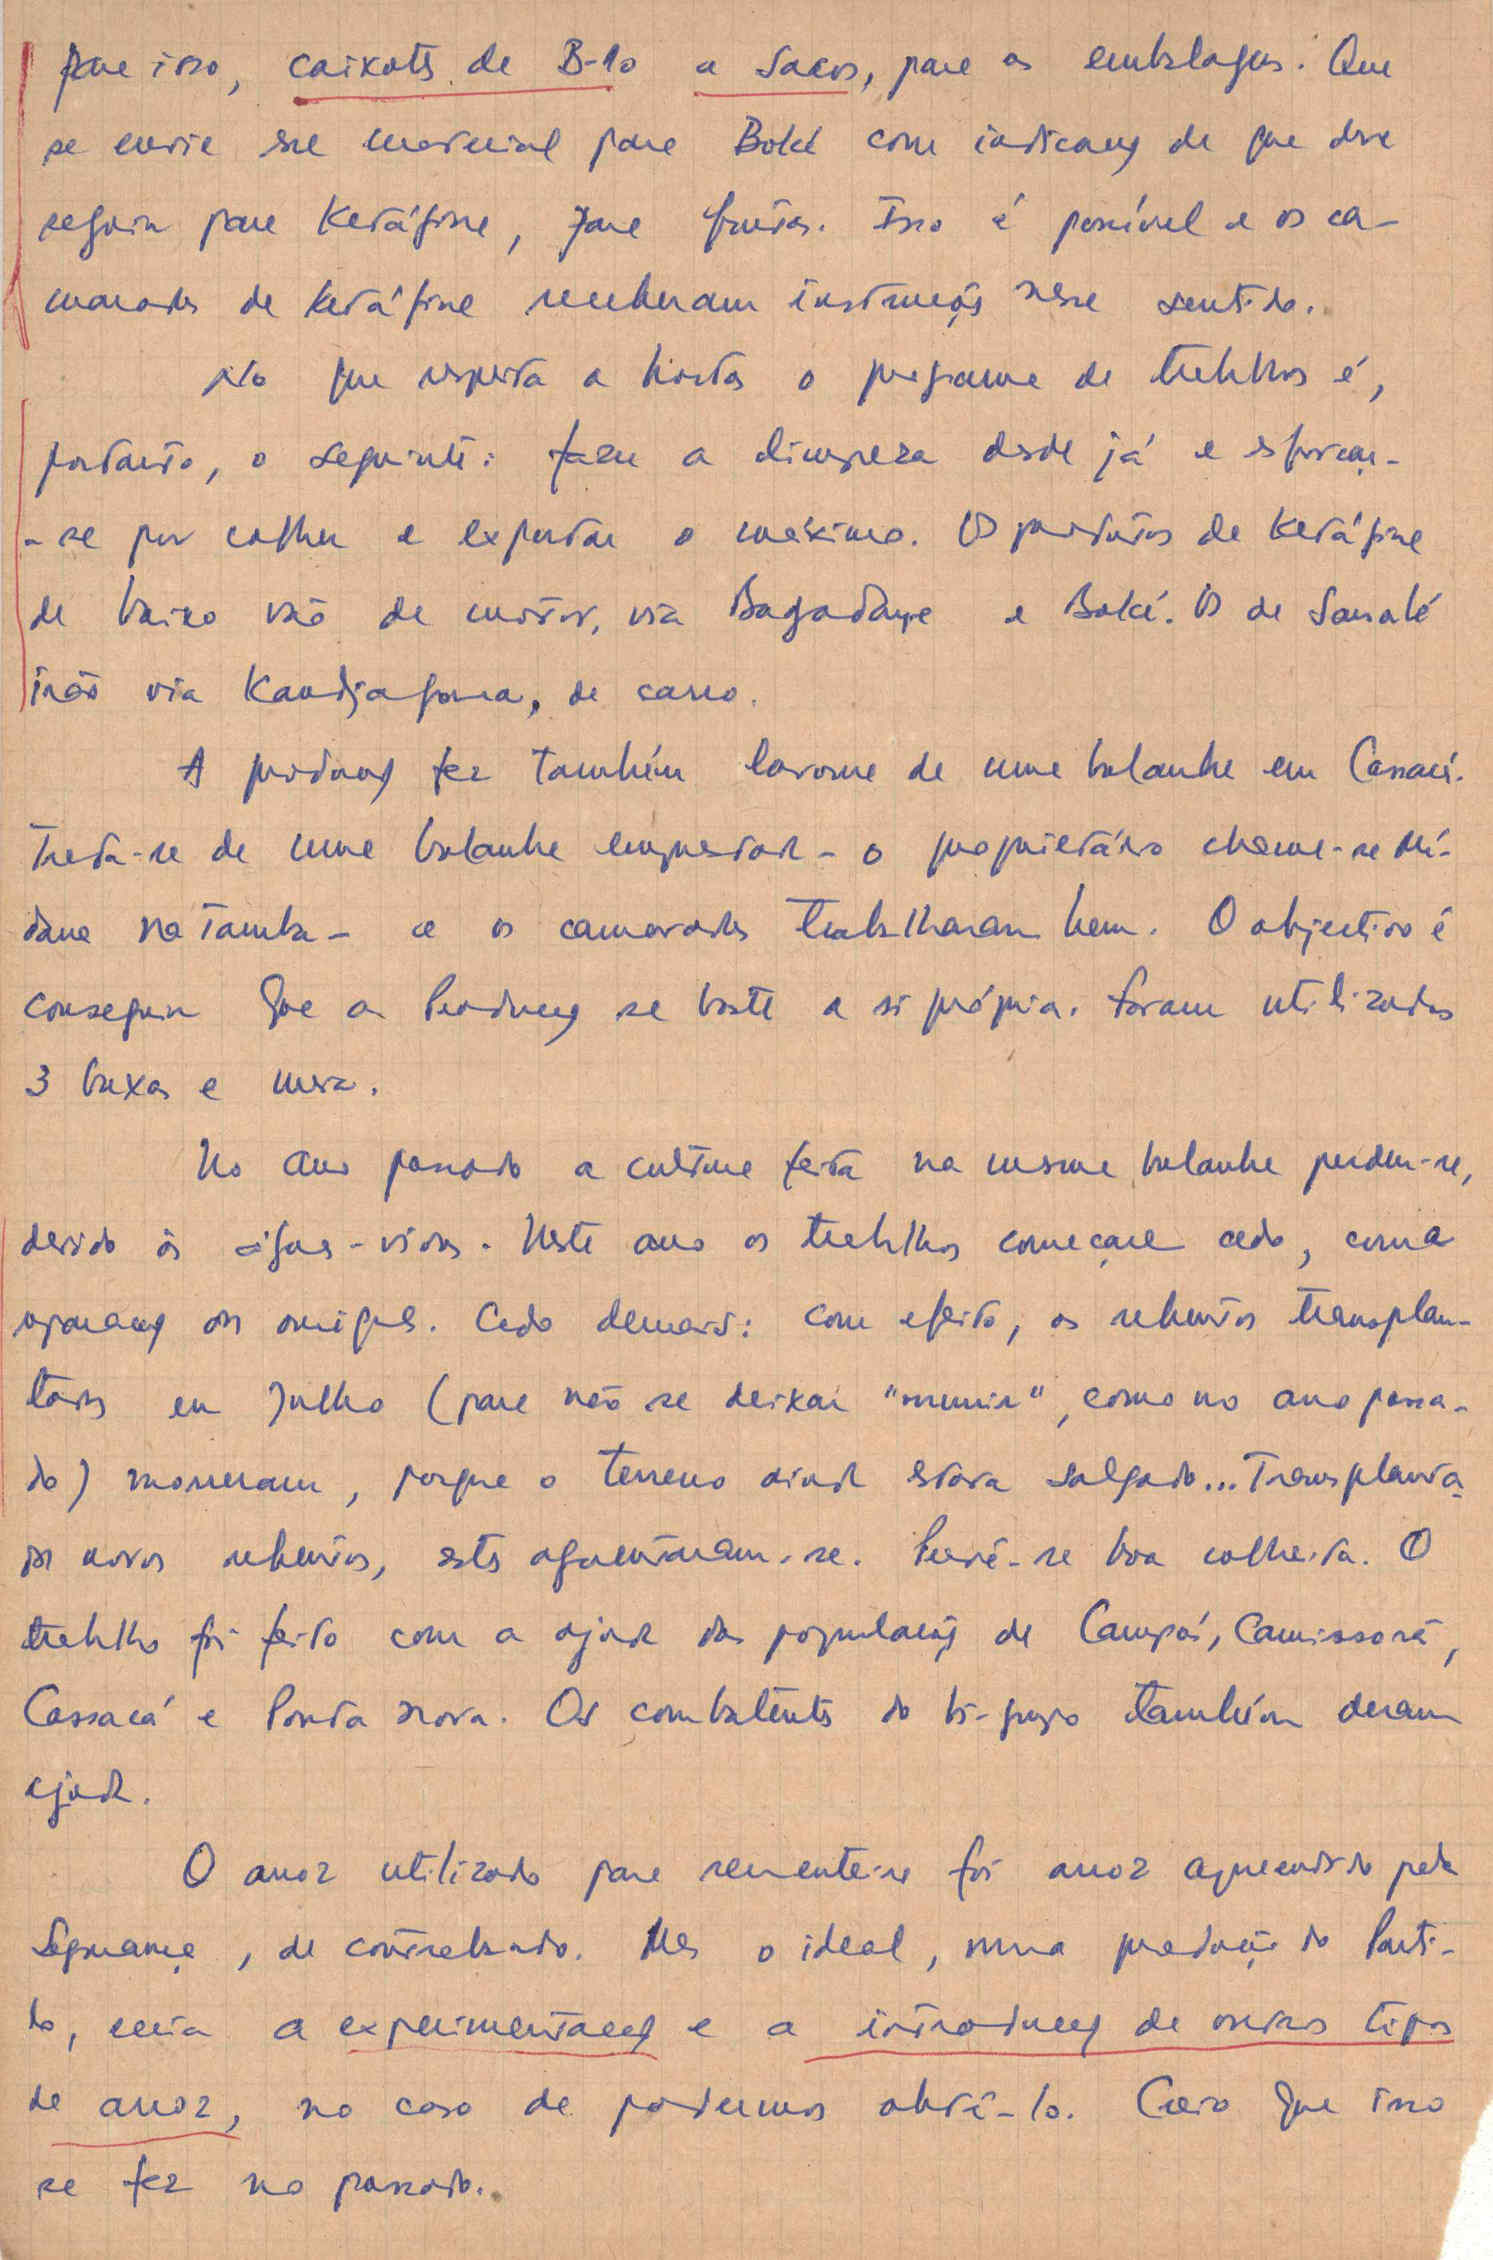 para isso, caixotes de B-10 e sacos, para as embalagens. Que
se envie esse material para Boké com indicação de que deve
seguir para Ketáfine, para frutas. Isso é possível e os ca-
maradas de Ketáfine receberam instruções nesse sentido.
No que respeita a hortas o programa de trabalhos é,
portanto, o seguinte: fazer a limpeza desde já e esforçar-
-se por colher e exportar o máximo. Os produtos de Ketáfine
de baixo vão de motor, via Bagadaye e Boké. Os de Sansalé
irão via Kandjafara, de carro.
A produção fez também lavoura de uma bolanha em Cassacá.
Trata-se de uma bolanha emprestada - o proprietário chama-se
na Tamba - e os camaradas trabalharam bem. O objectivo é
conseguir que a Produção se baste a si própria. Foram utilizadas
3 buxas e meia.
No ano passado a cultura feita na mesma bolanha perdeu-se,
devido às águas-vivas. Neste ano os trabalhos começaram cedo, com a
reparação dos ouriques. Cedo demais: com efeito, os rebentos transplan-
tados em Julho (para não se deixar "murrir", como no ano passa-
do) morreram, porque o terreno ainda estava salgado... Transplanta-
dos novos rebentos, estes aguentaram-se. Prevê-se boa colheita. O
trabalho foi feito com a ajuda das populações de Campó, Camissorã,
Cassacá e Ponta Nova. Os combatentes do bi-grupo também deram
ajuda.
O arroz utilizado para sementeira foi arroz apreendido pela
Segurança, de contrabando. Mas o ideal, numa produção do Parti-
do, seria a experimentação e a introdução de outros tipos
de arroz, no caso de podermos obtê-lo. Creio que isso
se fez no passado.